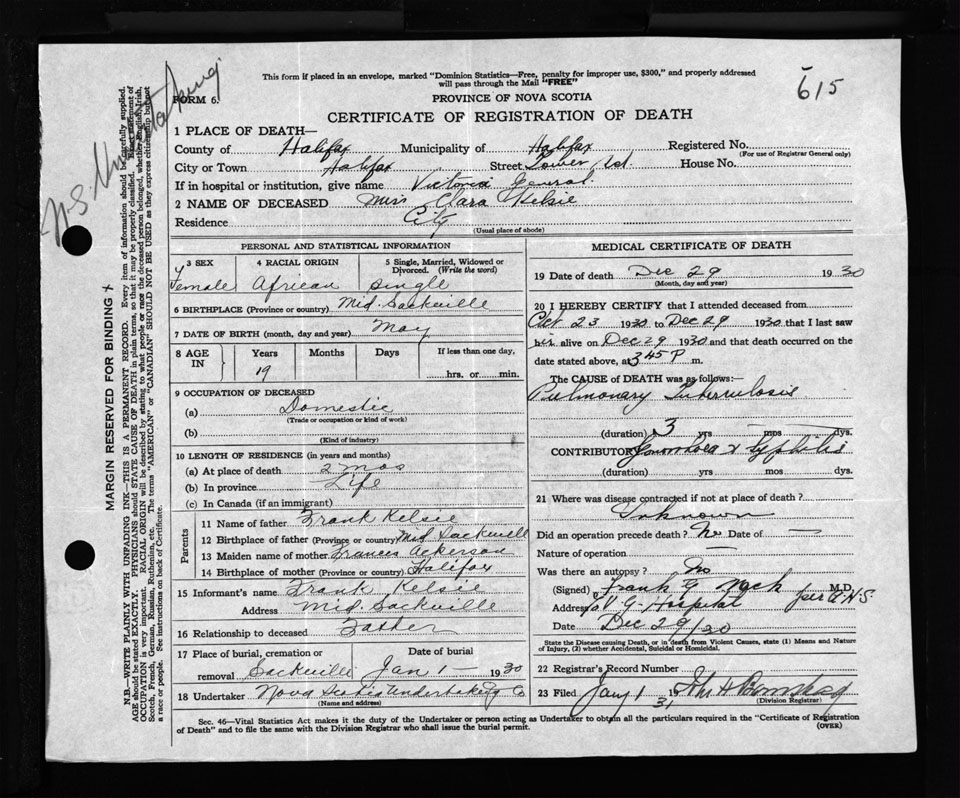 This form if placed in an envelope, marked "Dominion Statistics—Free, penalty for improper use, $300," and properly addressed
will pass through the Mail "FREE"
615
FORM 6.
PROVINCE OF NOVA SCOTIA
CERTIFICATE OF REGISTRATION OF DEATH
1 PLACE OF DEATH—
County of Halifax Municipality of Halifax Registered No.
(For use of Registrar General only)
City or Town Halifax Street Tower Rd. House No.
If in hospital or institution, give name Victoria General
2 NAME OF DECEASED Miss Clara Kelsie
Residence City
(Usual place of abode)
PERSONAL AND STATISTICAL INFORMATION
3 SEX 4 RACIAL ORIGIN 5 Single, Married, Widowed or
Divorced. (Write the word)
Female African Single
6 BIRTHPLACE (Province or country) Mid. Sackville
7 DATE OF BIRTH (month, day and year) May
8 AGE IN Years Months Days If less than one day,
19 hrs. or min.
9 OCCUPATION OF DECEASED
(a) Domestic
(Trade or occupation or kind of work)
(b)
(Kind of industry)
10 LENGTH OF RESIDENCE (in years and months)
(a) At place of death 2 mos
(b) In province Life
(c) In Canada (if an immigrant)
Parents
11 Name of father Frank Kelsie
12 Birthplace of father (Province or country) Mid Sackvill
13 Maiden name of mother Frances Ackerson
14 Birthplace of mother (Province or country) Halifax
15 Informant's name Frank Kelsie
Address Mid. Sackville
16 Relationship to deceased Father
17 Place of burial, cremation or Date of burial
removal Sackville Jan 1 — 1930
18 Undertaker Nova Scotia Undertaking Co
(Name and address)
MEDICAL CERTIFICATE OF DEATH
19 Date of death Dec 29 1930
(Month, day and year)
20 I HEREBY CERTIFY that I attended deceased from
Oct 23 1930 to Dec 29 1930 that I last saw
her alive on Dec 29 1930 and that death occurred on the
date stated above, at 3 45 P m.
The CAUSE of DEATH was as follows:—
Pulmonary Tuberculosis
(duration) 3 yrs mos dys.
CONTRIBUTORY Gonorrhoea & Syphilis
(duration) yrs mos dys.
21 Where was disease contracted if not at place of death?
Unknown
Did an operation precede death? No Date of —
Nature of operation —
Was there an autopsy? No
(Signed) Frank G. Mack M.D.
per
Address V G Hospital
Date Dec 29/30
State the Disease causing Death, or in death from Violent Causes, state (1) Means and Nature
of Injury, (2) whether Accidental, Suicidal or Homicidal.
22 Registrar's Record Number
23 Filed Jany 1 1931
(Division Registrar)
Sec. 46—Vital Statistics Act makes it the duty of the Undertaker or person acting as Undertaker to obtain all the particulars required in the "Certificate of Registration
of Death" and to file the same with the Division Registrar who shall issue the burial permit.
(OVER)
MARGIN RESERVED FOR BINDING
N.B.—WRITE PLAINLY WITH UNFADING INK—THIS IS A PERMANENT RECORD. Every item of information should be carefully supplied.
AGE should be stated EXACTLY. PHYSICIANS should STATE CAUSE OF DEATH in plain terms, so that it may be properly classified. Exact statement of
OCCUPATION is very important. RACIAL ORIGIN will be described by stating to what people or race the deceased person belonged, whether English, Irish,
Scotch, French, German, Russian, Ruthenian, etc. The terms "AMERICAN" or "CANADIAN" SHOULD NOT BE USED as they express citizenship but not
a race or people. See instructions on back of Certificate.